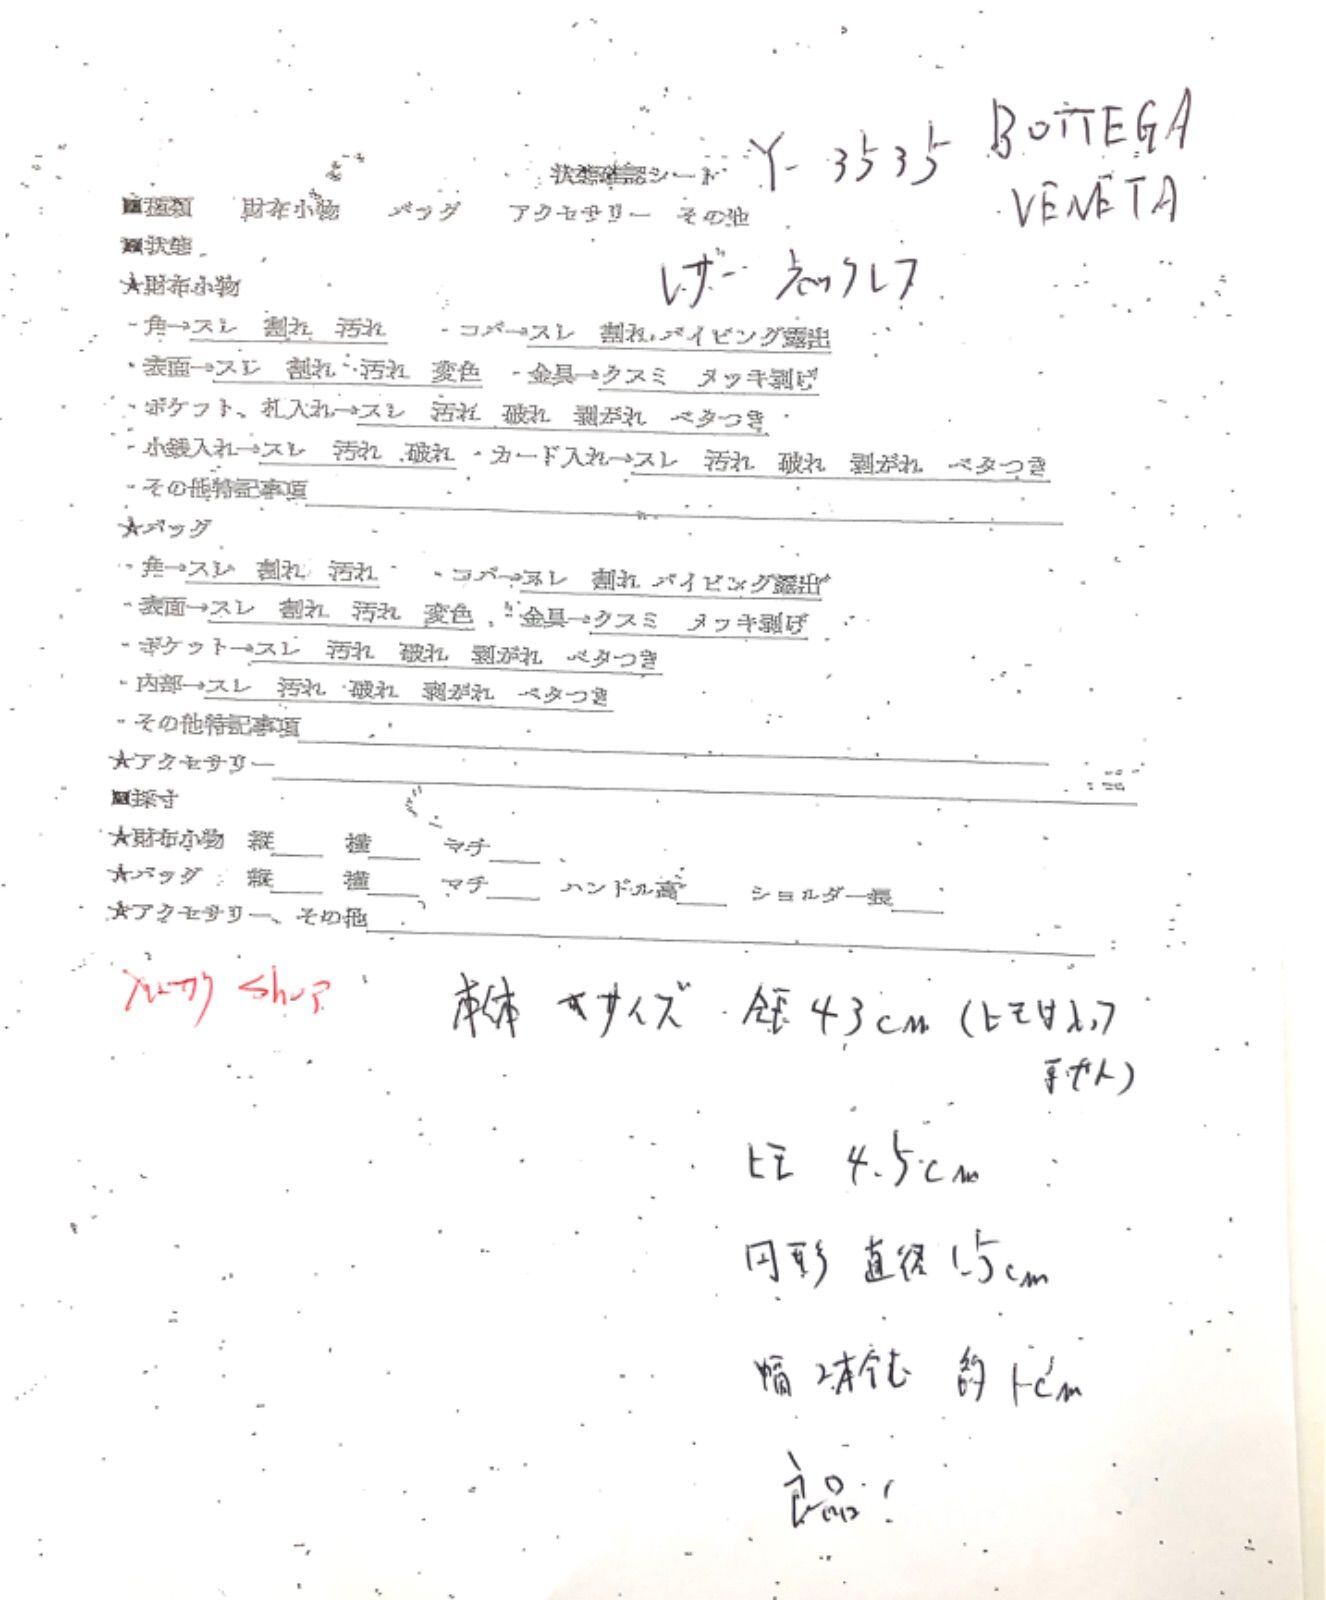 Y- 3535 BOTTEGA
VENETA
状態確認シート
■種類 財布小物 バッグ アクセサリー その他
■状態
レザー ネックレス
★財布小物
・角→スレ 割れ 汚れ ・コバ→スレ 割れ パイピング露出
・表面→スレ 割れ 汚れ 変色 ・金具→クスミ メッキ剥げ
・ポケット、札入れ→スレ 汚れ 破れ 剥がれ ベタつき
・小銭入れ→スレ 汚れ 破れ ・カード入れ→スレ 汚れ 破れ 剥がれ ベタつき
・その他特記事項
★バッグ
・角→スレ 割れ 汚れ ・コバ→スレ 割れ パイピング露出
・表面→スレ 割れ 汚れ 変色 ・金具→クスミ メッキ剥げ
・ポケット→スレ 汚れ 破れ 剥がれ ベタつき
・内部→スレ 汚れ 破れ 剥がれ ベタつき
・その他特記事項
★アクセサリー
■採寸
★財布小物 縦 横 マチ
★バッグ 縦 横 マチ ハンドル高 ショルダー長
★アクセサリー、その他
本体 サイズ 全長 43cm (ヒモは入って
ません)
ヒモ 4.5cm
円形 直径 1.5cm
幅 2本含む 約 1cm
良品!